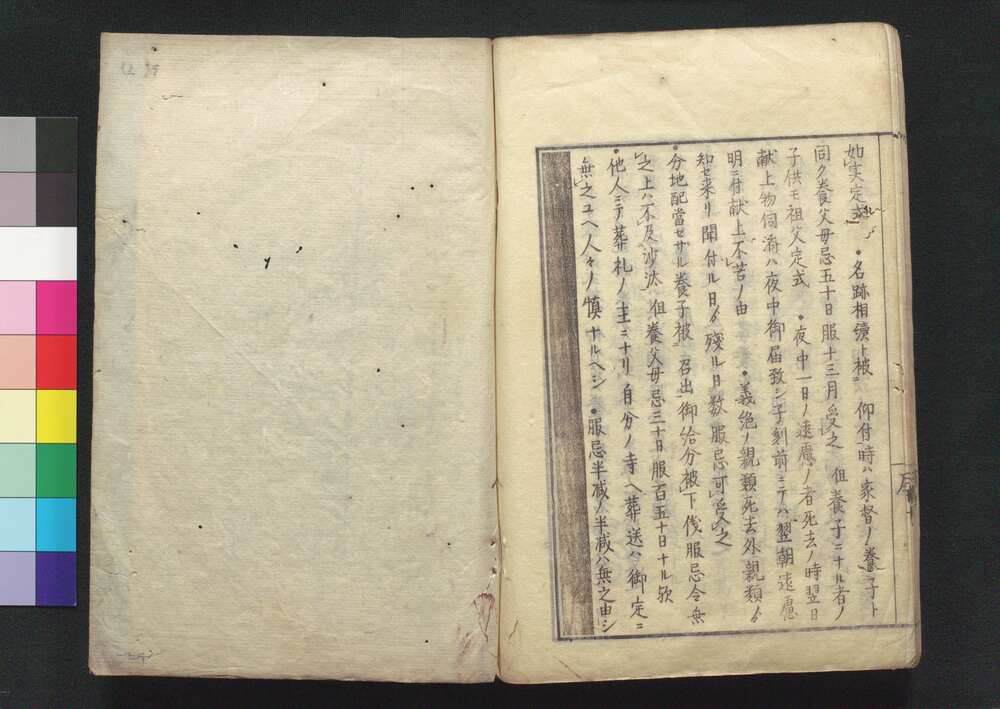 如実定式 •名跡相續ト被 仰付時ハ家督ノ養子ト
同ク養父母忌五十日服十三月受之 但養子ニナル者ノ
子供モ祖父定式 •夜中一日ノ遠慮ノ者死去ノ時翌日
献上物伺済ハ夜中御届致シ子刻前ニテハ翌朝遠慮
明ニ付献上不苦ノ由 •義絶ノ親類死去外親類ゟ
知セ来リ聞付ル日ゟ残ル日数服忌可受之
•分地配當セサル養子被 召出御給分被下候服忌令無
之上ハ不及沙汰 但養父母忌三十日服百五十日ナル欤
•他人ニテ葬礼ノ主ニナリ自分ノ寺ヘ葬送ハ御定ニ
無之ユヘ人々ノ慎ナルヘシ •服忌半减ノ半减ハ無之由シ